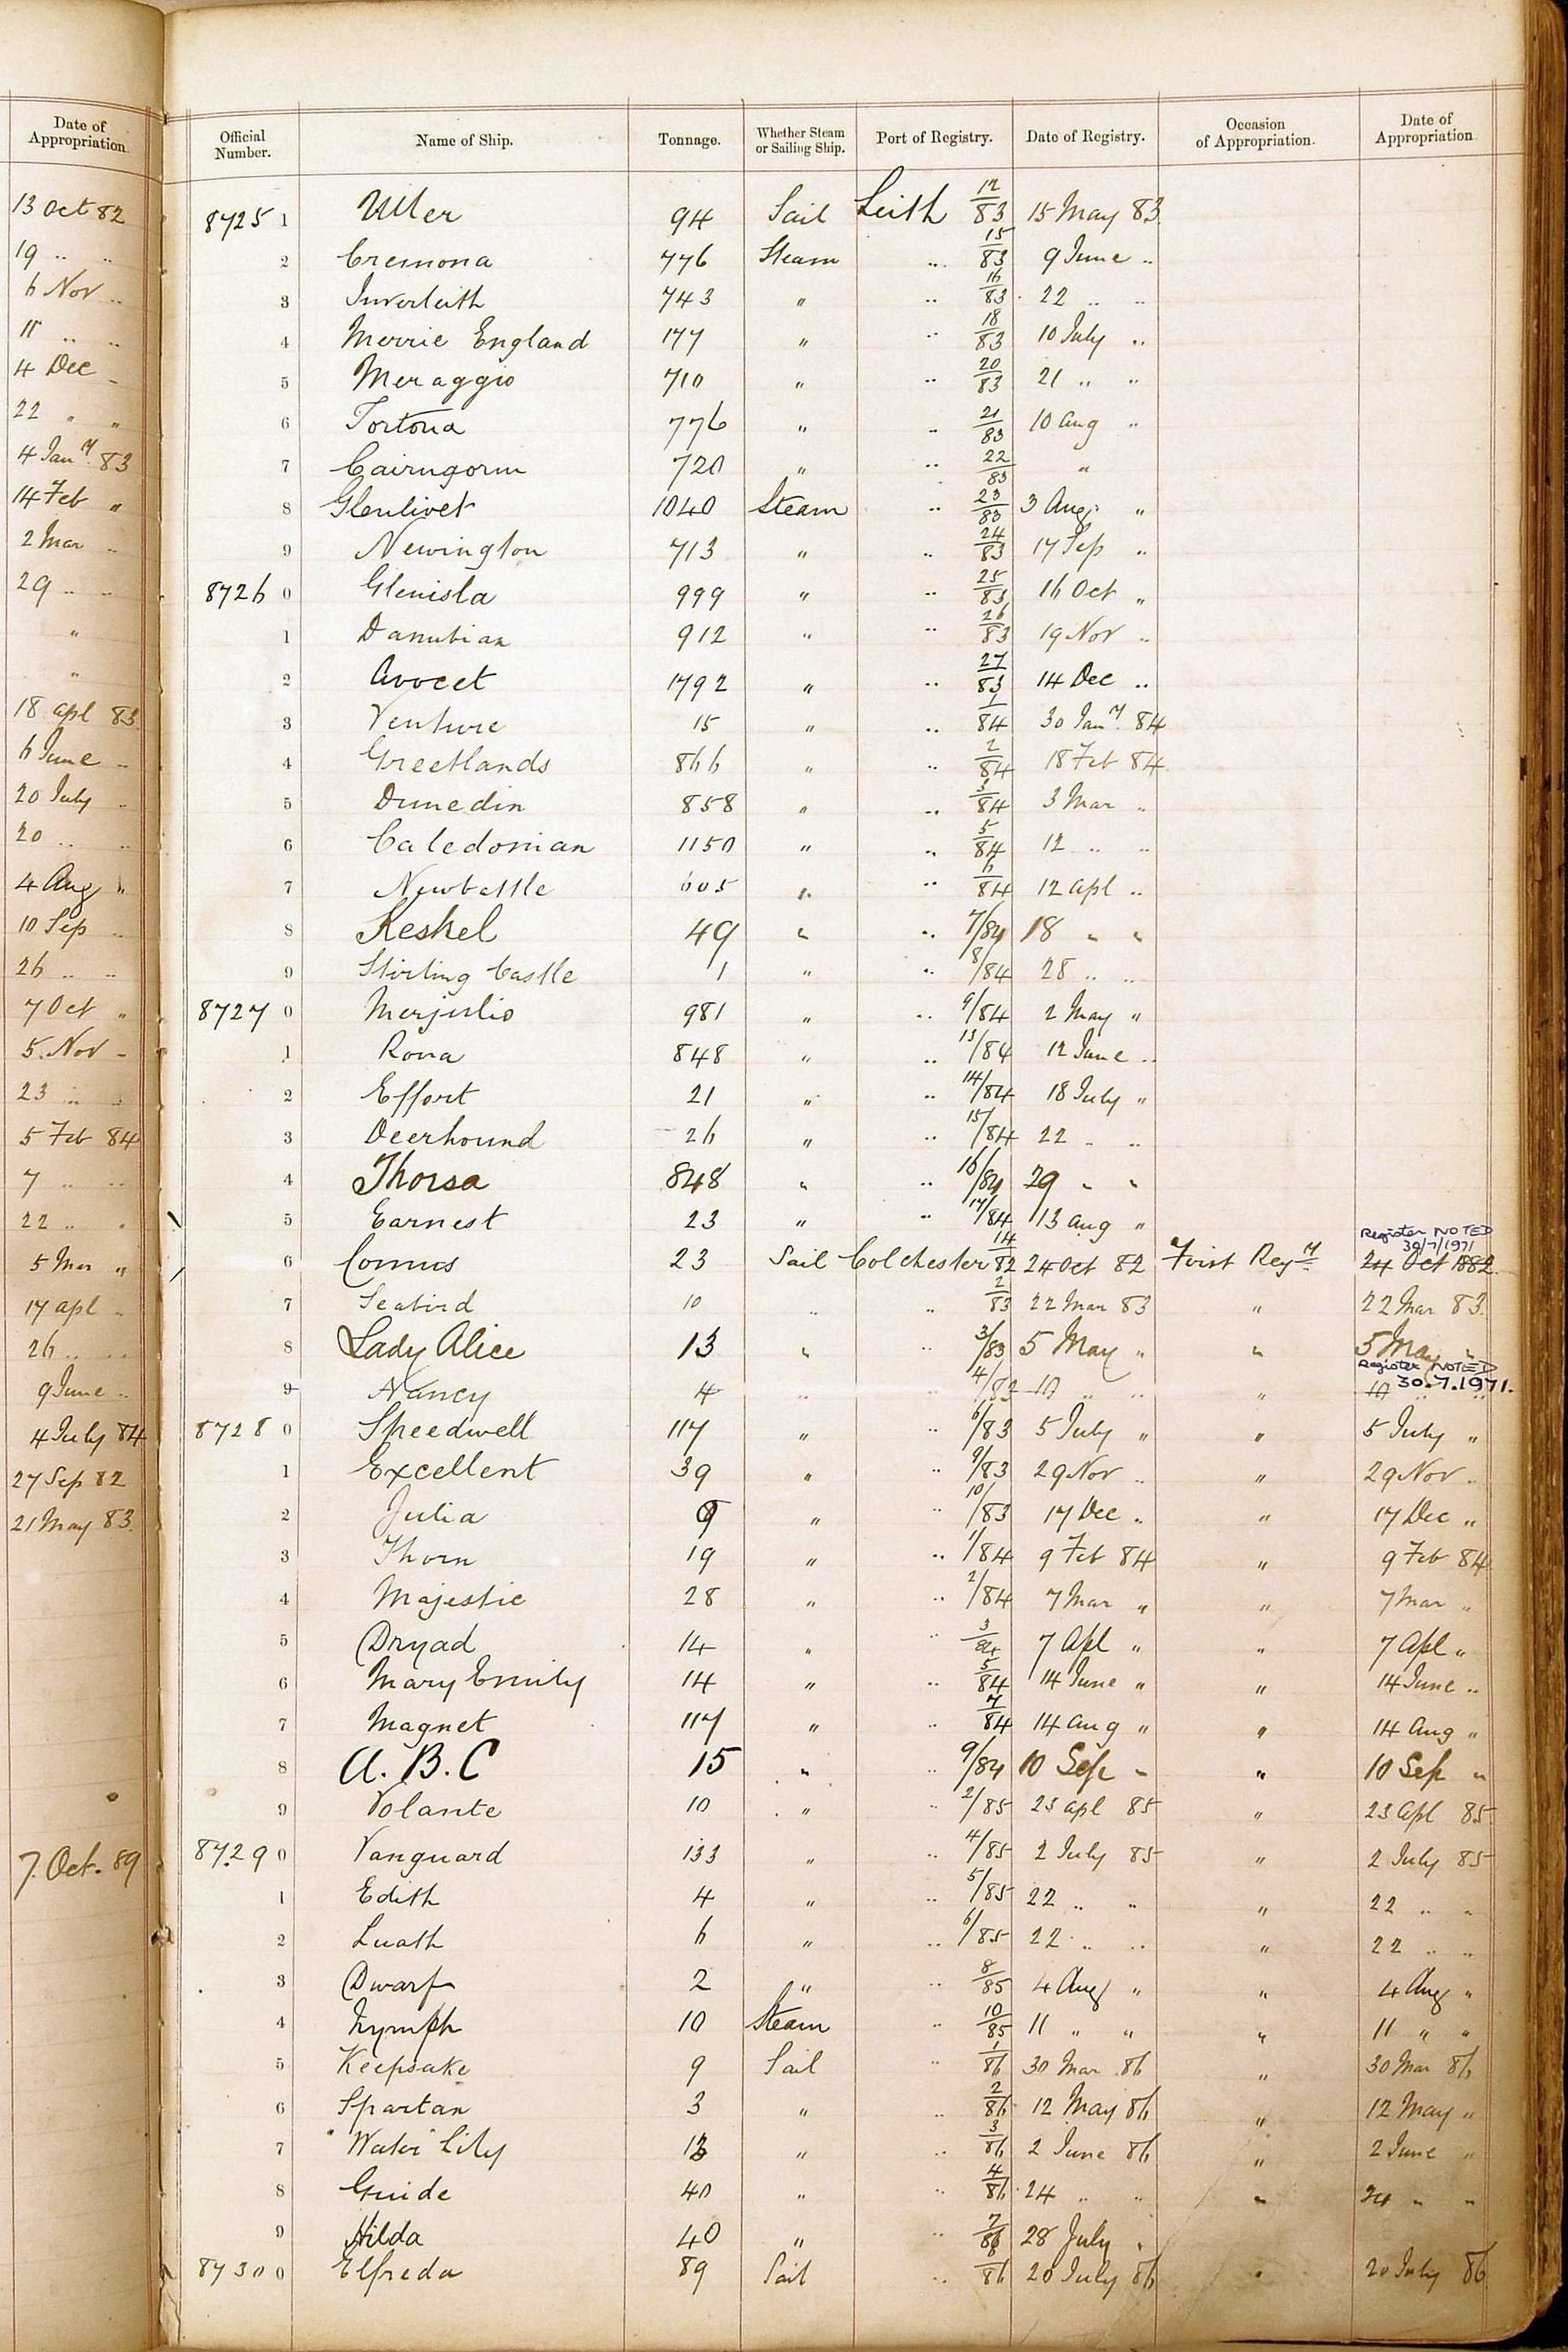 Date of Appropriation.
13 Oct 82
19 " "
6 Nov "
11 " "
4 Dec "
22 " "
4 Jany 83
14 Feb "
2 Mar "
29 " "
"
"
18 Apl 83
6 June "
20 July "
20 " "
4 Aug "
10 Sep "
26 " "
7 Oct "
5 Nov "
23 " "
5 Feb 84
7 " "
22 " "
5 Mar "
17 Apl "
26 " "
9 June "
4 July 84
27 Sep 82
21 May 83
7. Oct. 89
Official Number. Name of Ship. Tonnage. Whether Steam or Sailing Ship. Port of Registry. Date of Registry. Occasion of Appropriation. Date of Appropriation.
8725 1 94 Sail Leith 12/83 15 May 83
2 Cremona 776 Steam " 15/83 9 June "
3 Inverleith 743 " " 16/83 22 " "
4 Merrie England 177 " " 18/83 10 July "
5 Meraggio 710 " " 20/83 21 " "
6 Tortona 776 " " 21/83 10 Aug "
7 Cairngorm 720 " " 22/83 "
8 Glenlivet 1040 Steam " 23/83 3 Aug "
9 Newington 713 " " 24/83 17 Sep "
8726 0 Glenisla 999 " " 25/83 16 Oct "
1 Danubian 912 " " 26/83 19 Nov "
2 Avocet 1792 " " 27/83 14 Dec "
3 Venture 15 " " 1/84 30 Jany 84
4 Greetlands 866 " " 2/84 18 Feb 84
5 Dunedin 858 " " 3/84 3 Mar "
6 Caledonian 1150 " " 5/84 12 " "
7 Newbattle 605 " " 6/84 12 Apl "
8 Keshel 49 " " 7/84 18 " "
9 Stirling Castle 1 " " 8/84 28 " "
8727 0 Merjulio 981 " " 9/84 2 May "
1 Rona 848 " " 13/84 12 June "
2 Effort 21 " " 14/84 18 July "
3 Deerhound 26 " " 15/84 22 " "
4 Thorsa 848 " " 16/84 29 " "
5 Earnest 23 " " 17/84 13 Aug "
Register NOTED
30/7/1971
6 Comus 23 Sail Colchester 14/82 24 Oct 82 First Regy 24 Oct 1882
7 Seabird 10 " " 2/83 22 Mar 83 " 22 Mar 83
8 Lady Alice 13 " " 3/83 5 May " " 5 May "
Register NOTED
30.7.1971.
9 Nancy 4 " " 4/83 10 " " " 10 " "
8728 0 Speedwell 117 " " 6/83 5 July " " 5 July "
1 Excellent 39 " " 9/83 29 Nov " " 29 Nov "
2 Julia 9 " " 10/83 17 Dec " " 17 Dec "
3 Thorn 19 " " 1/84 9 Feb 84 " 9 Feb 84
4 Majestic 28 " " 2/84 7 Mar " " 7 Mar "
5 Dryad 14 " " 3/84 7 Apl " " 7 Apl "
6 Mary Emily 14 " " 5/84 14 June " " 14 June "
7 Magnet 117 " " 7/84 14 Aug " " 14 Aug "
8 A. B. C 15 " " 9/84 10 Sep " " 10 Sep "
9 Volante 10 " " 2/85 23 Apl 85 " 23 Apl 85
8729 0 Vanguard 133 " " 4/85 2 July 85 " 2 July 85
1 Edith 4 " " 5/85 22 " " " 22 " "
2 Luath 6 " " 6/85 22 " " " 22 " "
3 Dwarf 2 " " 8/85 4 Aug " " 4 Aug "
4 Nymph 10 Steam " 10/85 11 " " " 11 " "
5 Keepsake 9 Sail " 1/86 30 Mar 86 " 30 Mar 86
6 Spartan 3 " " 2/86 12 May 86 " 12 May "
7 "Water Lily 13 " " 3/86 2 June 86 " 2 June "
8 Guide 40 " " 4/86 24 " " " 24 " "
9 Hilda 40 " " 7/86 28 July "
8730 0 Elfreda 89 Sail " 86 20 July 86 " 20 July 86